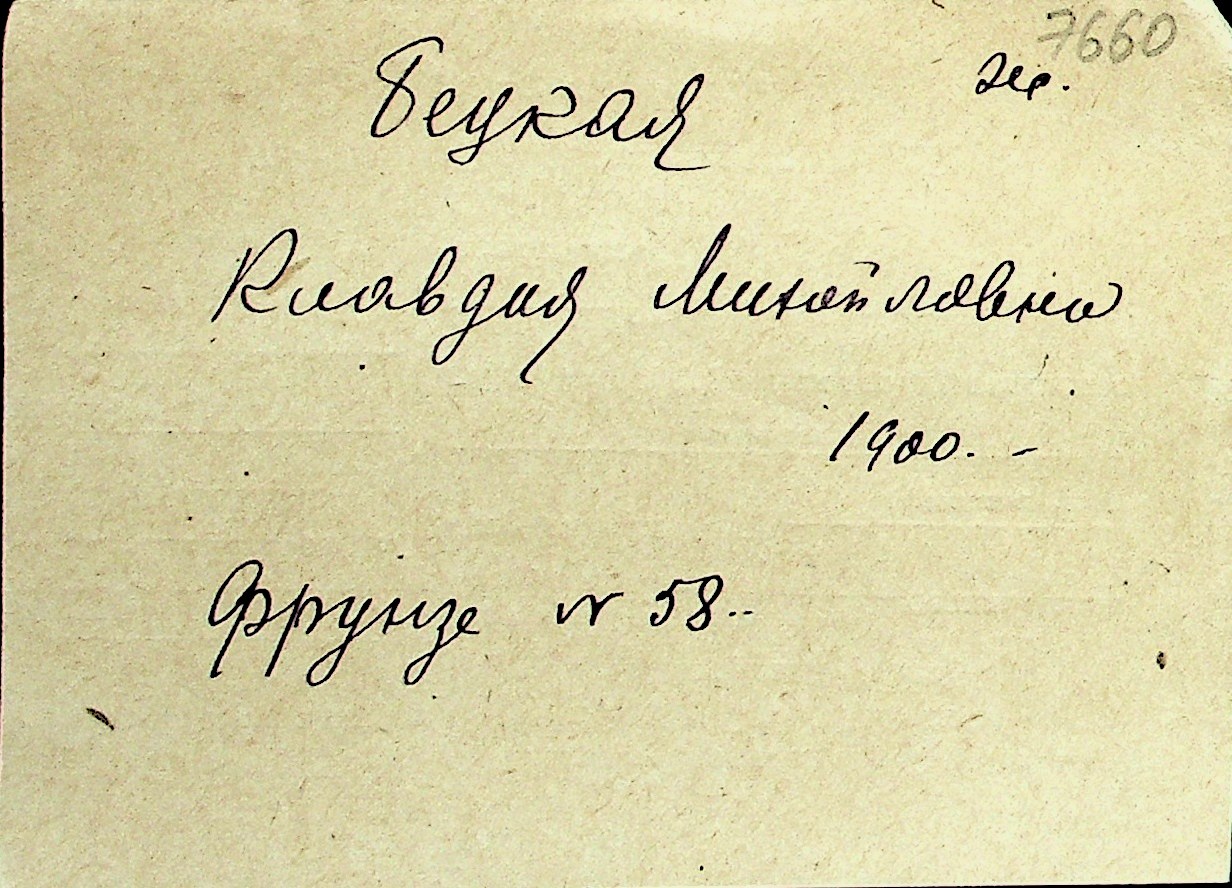 7660
Бецкая
Клавдия Михайловна
1900. -
Фрунзе № 58..